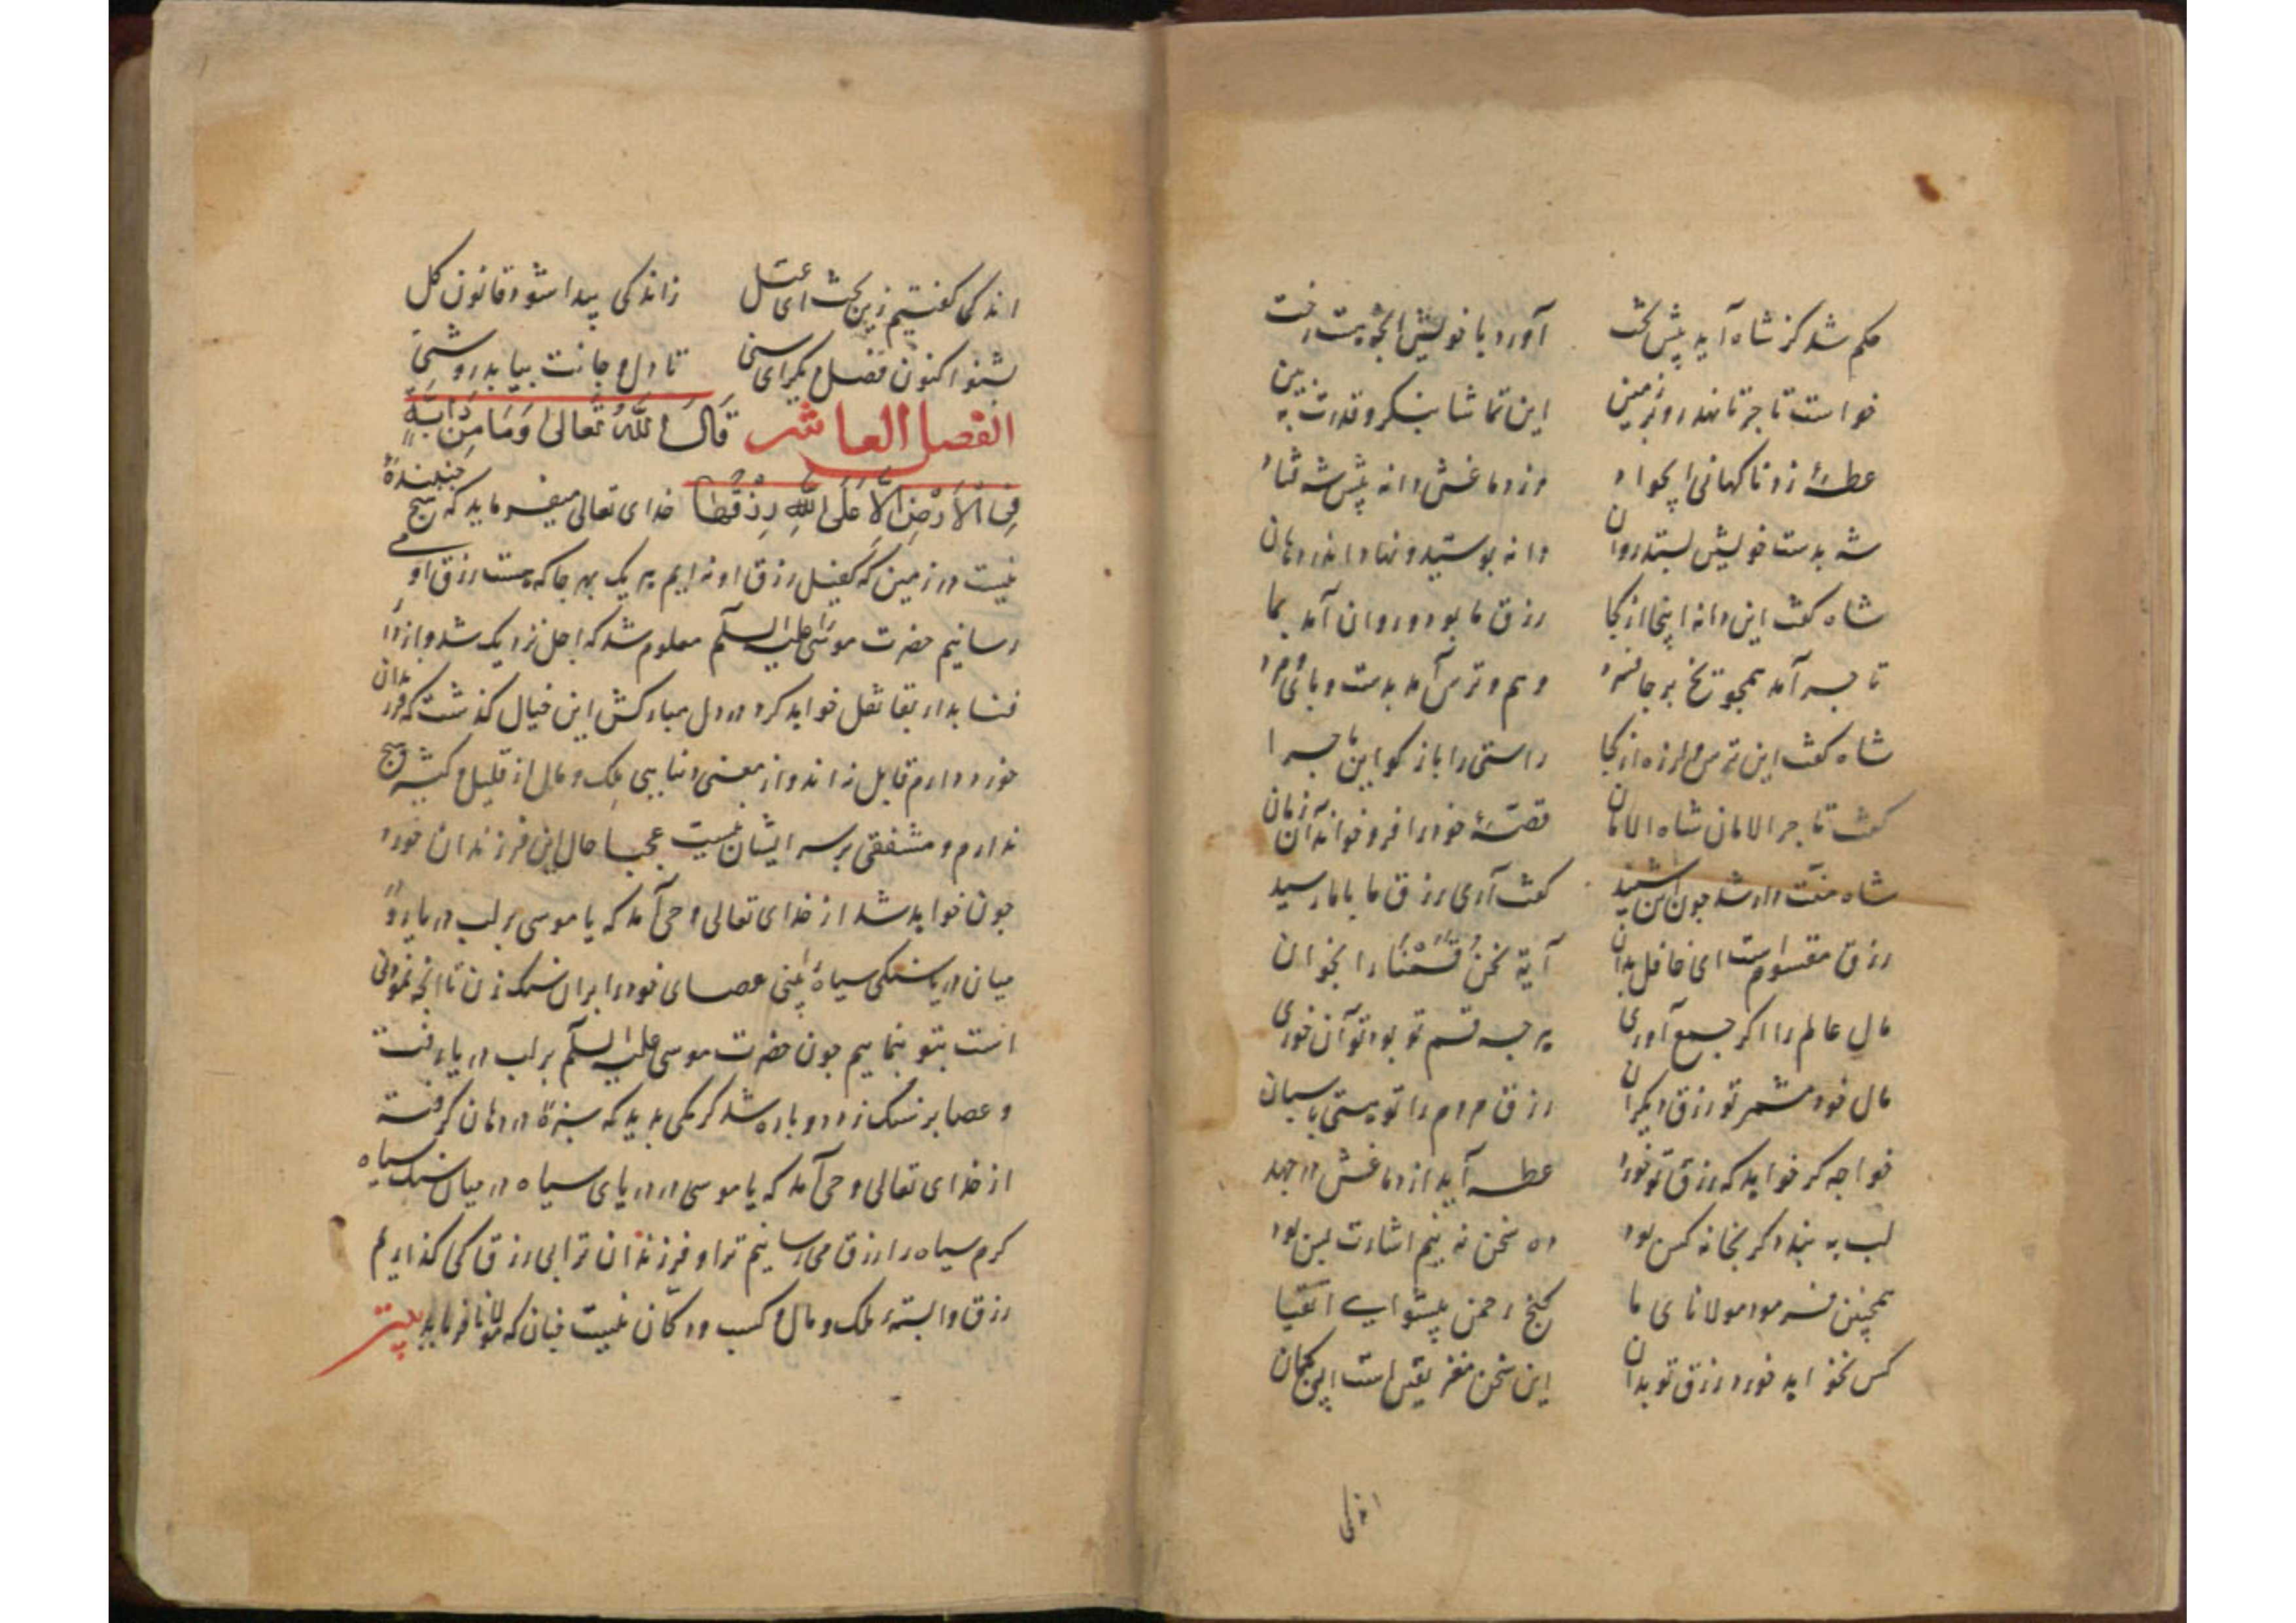 حکم شد کز شاه آید پیش تخت آورد با خویش آنجویت رخت
خواست تاجر تا نهد رو بر زمین این تماشا بنگر و قدرت به بین
عطسهٔ زد ناکهانی آنجواد وز دماغش دانه پیش شه فتاد
شه بدست خویش بستد روان دانه بوسید و نهاد اندر دهان
شاه کفت این دانه اینجا از کجا رزق ما بود و روان آمد بما
تاجر آمد همچو یخ بر جا فسرد وهم و ترس آمد بدست و پای مرد
شاه کفت این ترس و لرزه از کجا راستی را باز کو این ماجرا
کفت تاجر الامان شاه الامان قصهٔ خود را فرو خواند آن زمان
شاه منت دار شد چون این شنید کفت آری رزق ما با ما رسید
رزق مقسوم است ای غافل بدان آیة نحن قسمنا را بخوان
مال عالم را اکر جمع آوری هر چه قسم تو بود تو آن خوری
مال خود مشمر تو رزق دیکران رزق مردم را تو هستی پاسبان
خواجه کر خواهد که رزق تو خورد عطسه آید از دماغش در جهد
لب به بندد کر بخانه کس بود ده سخن نه بینم اشارت بس بود
همچنین فرمود مولانای ما کنج رحمن پیشوای اتقیا
کس نخواهد خورد رزق تو بدان این سخن مغز یقین است ای کمان
اندکی
اندکی کفتیم زین بحث ای عتل زاندکی پیدا شود قانون کل
بشنو اکنون فصل دیکر ای سنی تا دل و جانت بیابد روشنی
الفصل العاشر قال الله تعالی وما من دابة
فی الارض الا علی الله رزقها خدای تعالی میفرماید که هیچ جنبندهٔ
نیست در زمین که کفیل رزق او نه ایم هر یک بهر جا که هست رزق او می
رسانیم حضرت موسی علیه السلام معلوم شد که اجل نزدیک شد و از دار
فنا بدار بقا نقل خواهد کرد در دل مبارکش این خیال کذشت که فرزندان
خورد دارم قابل نه اند و از معنی دنیا بی ملک و مال از قلیل و کثیر هیچ
ندارم و مشفقی بر سر ایشان نیست عجبا حال این فرزندان خورد
چون خواهد شد از خدای تعالی وحی آمد که یا موسی بر لب دریا رو
میان دریا سنکی سیاه بینی عصای خود را بران سنک زن تا انچه نمودنی
است بتو بنماییم چون حضرت موسی علیه السلام بر لب دریا رفت
و عصا بر سنک زد دو پاره شد کرمکی بدید که سبزهٔ در دهان کرفته
از خدای تعالی وحی آمد که یا موسی در دریای سیاه در میان سنک سیاه
کرم سیاه را رزق می رسانیم ترا و فرزندان ترا بی رزق کی کذاریم
رزق وابستهٔ ملک و مال و کسب و دکان نیست چنان که مولانا فرماید بیت